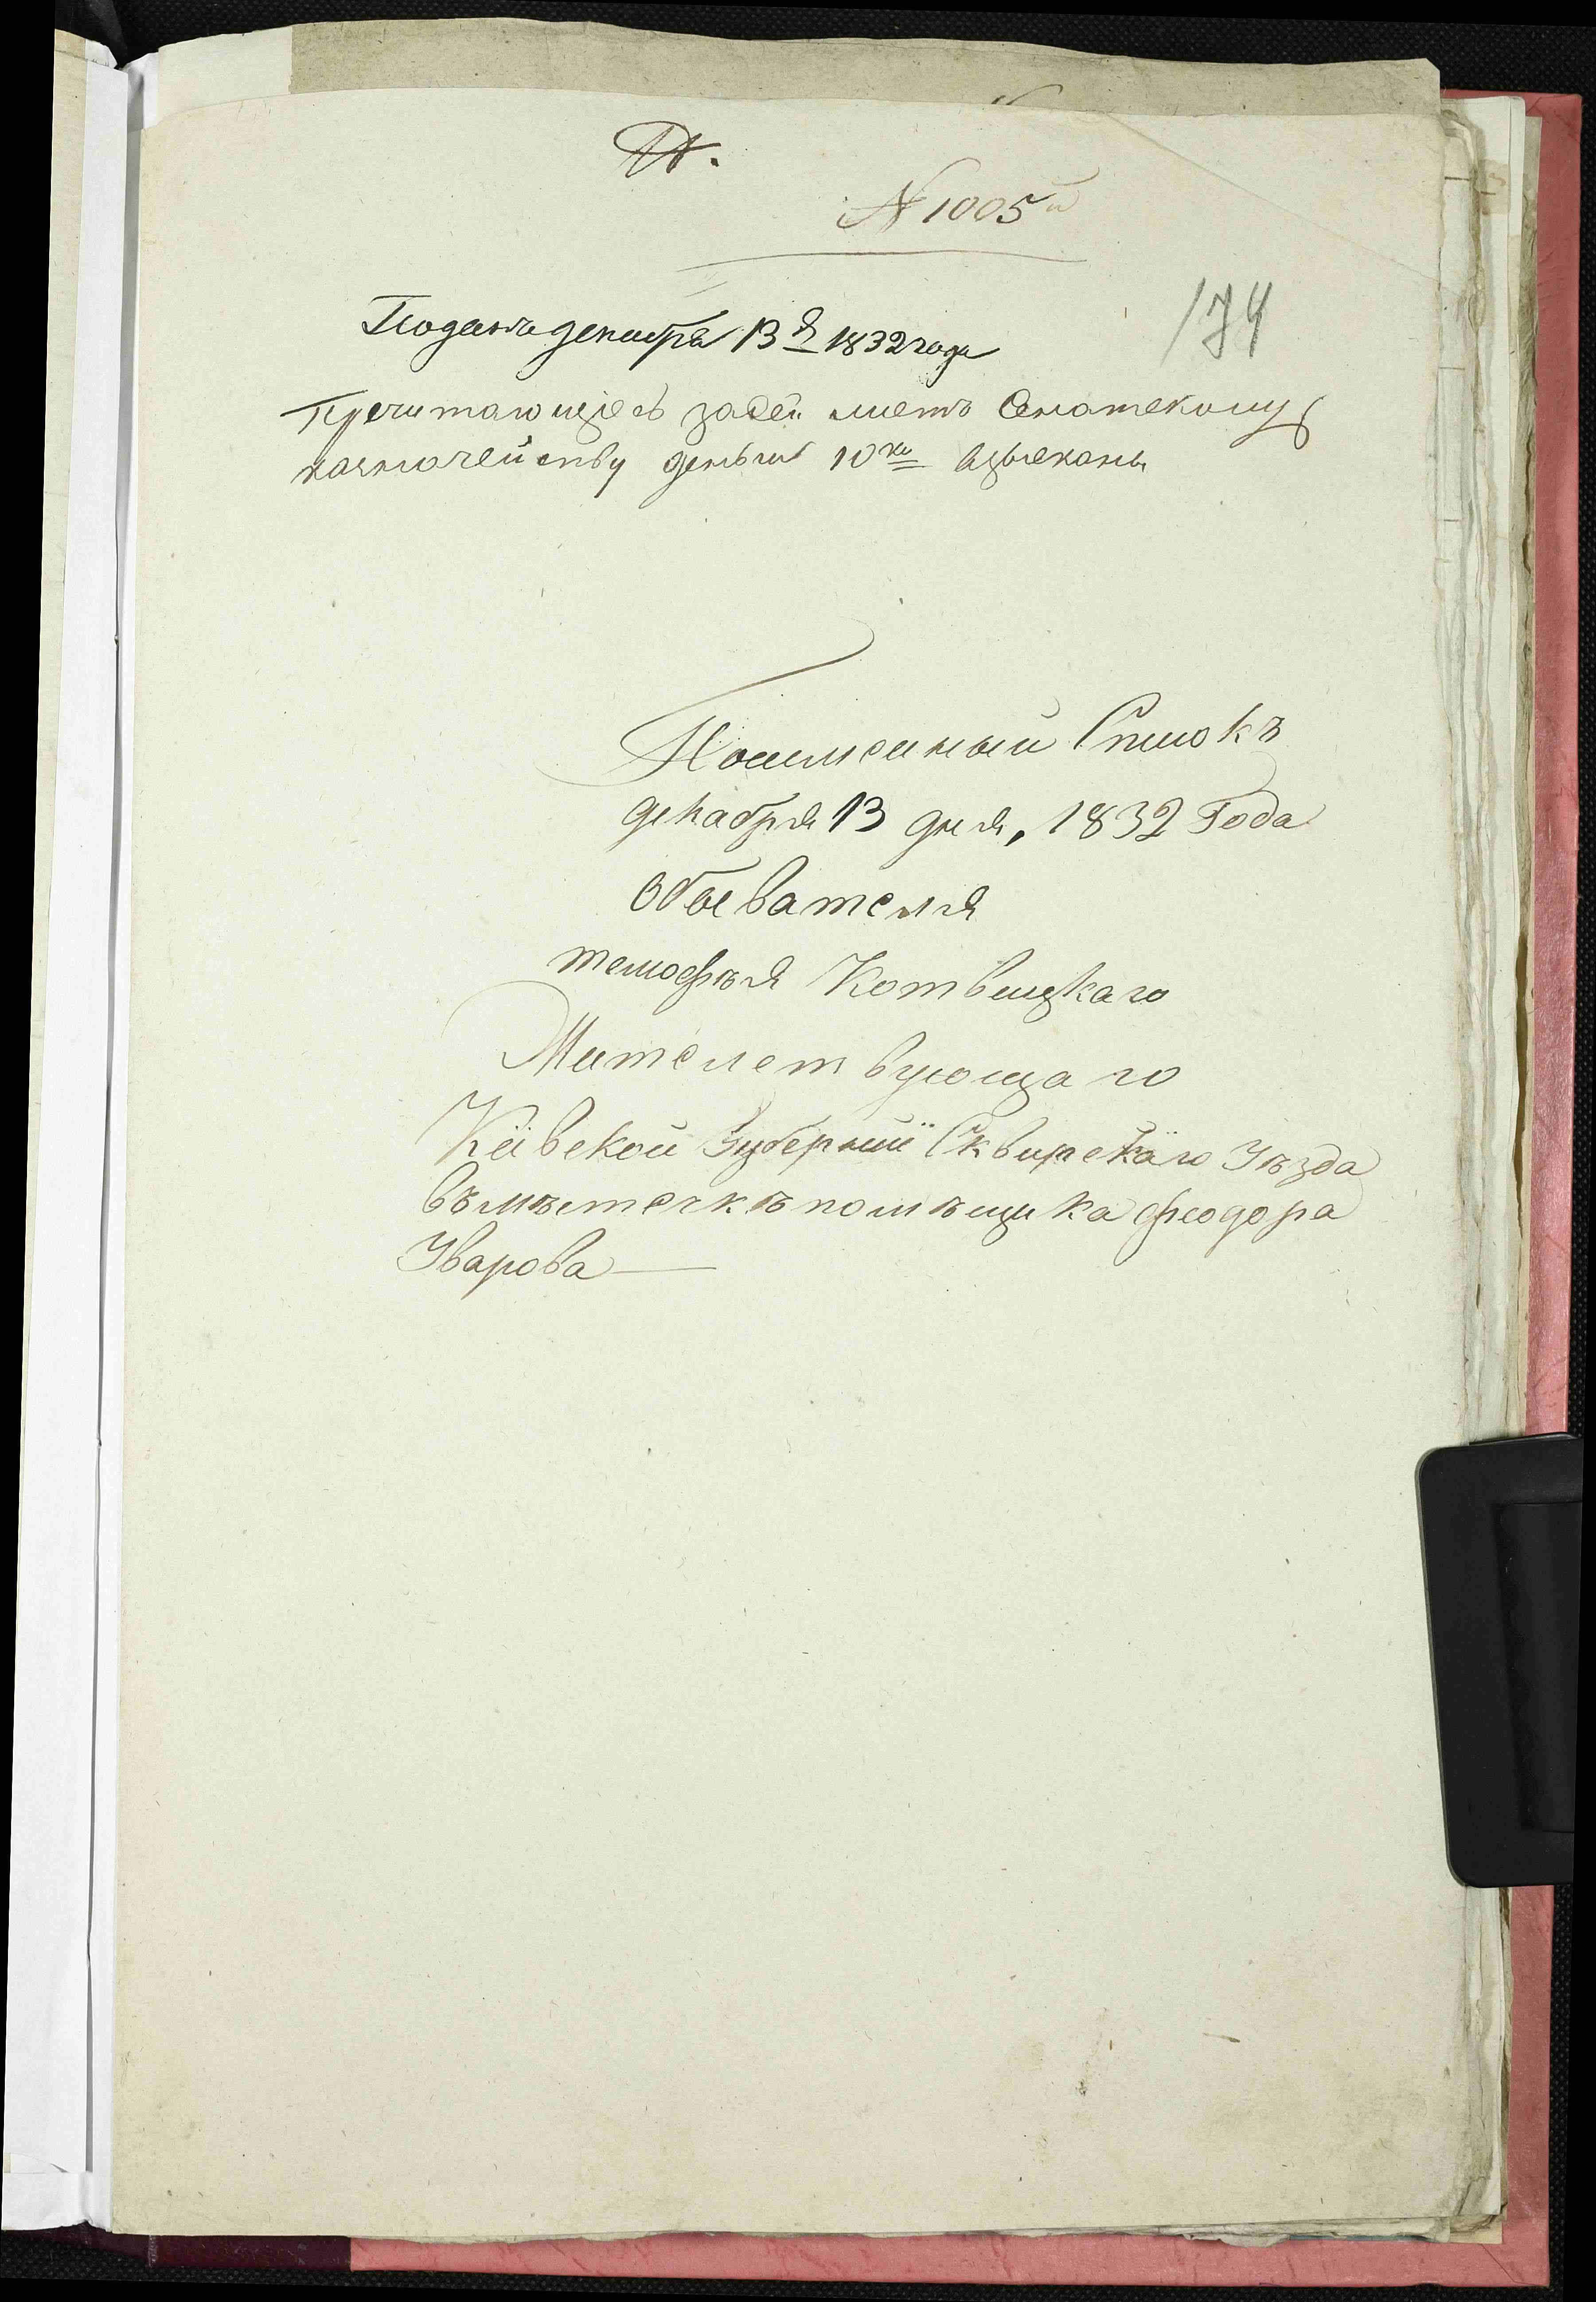 № 1005й
174
Поданъ декабря 13 д 1832 года
Пречитающіесь засей листъ Сенатскому
казначейству деньги 10 ко взысканы
Поименный Списокъ
декабря 13 дня, 1832 Года
Обывателя
тимофѣя Котвицкаго
Жителствующаго
Кіівской Губерніи Сквирскаго Уѣзда
въ мѣстечкѣ помѣщика феодора
Уварова